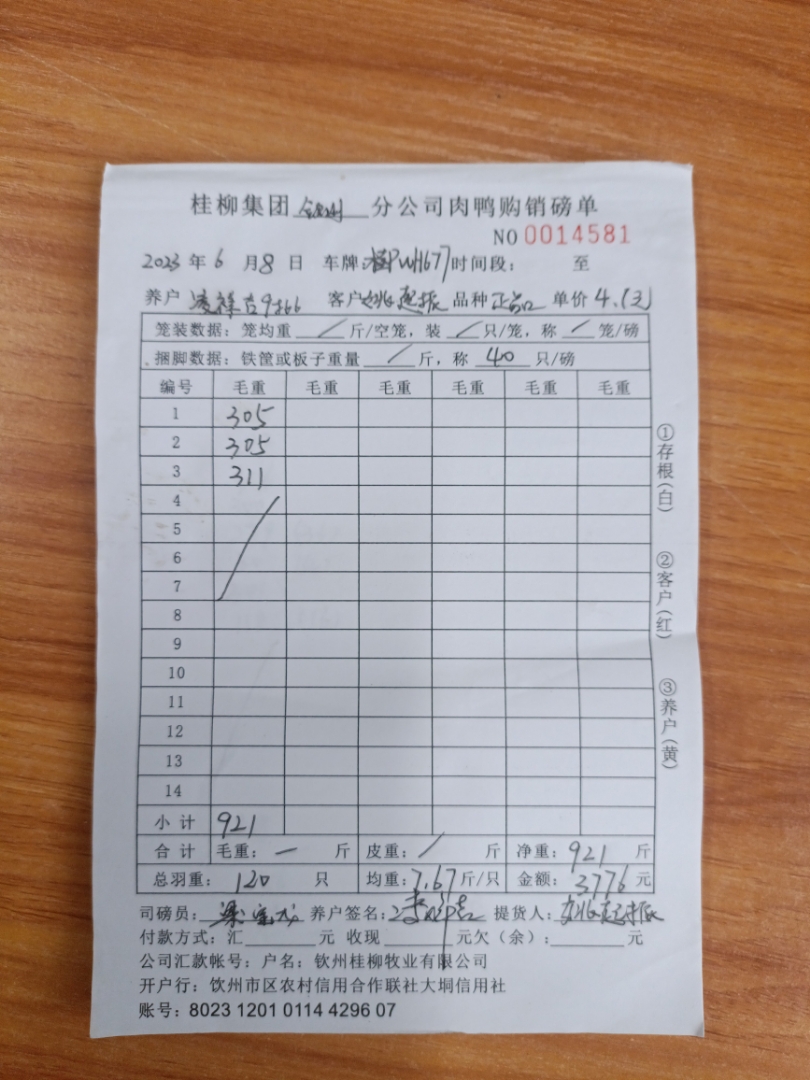 桂柳集团 钦州 分公司肉鸭购销磅单
NO 0014581
2023 年 6 月 8 日 车牌: 时间段: 至
养户 客户 姚起振 品种 正品 单价 4.1元
笼装数据: 笼均重 / 斤/空笼, 装 / 只/笼, 称 / 笼/磅
捆脚数据: 铁筐或板子重量 / 斤, 称 40 只/磅
编号 毛重 毛重 毛重 毛重 毛重 毛重
1 305
2 305
3 311
4
5
6
7
8
9
10
11
12
13
14
小计 921
合计 毛重: 一 斤 皮重: / 斤 净重: 921 斤
总羽重: 120 只 均重: 7.67 斤/只 金额: 3776 元
司磅员: 养户签名: 提货人: 姚起振
付款方式: 汇 元 收现 元欠(余): 元
公司汇款帐号: 户名: 钦州桂柳牧业有限公司
开户行: 饮州市区农村信用合作联社大垌信用社
账号: 8023 1201 0114 4296 07
①存根(白)
②客户(红)
③养户(黄)